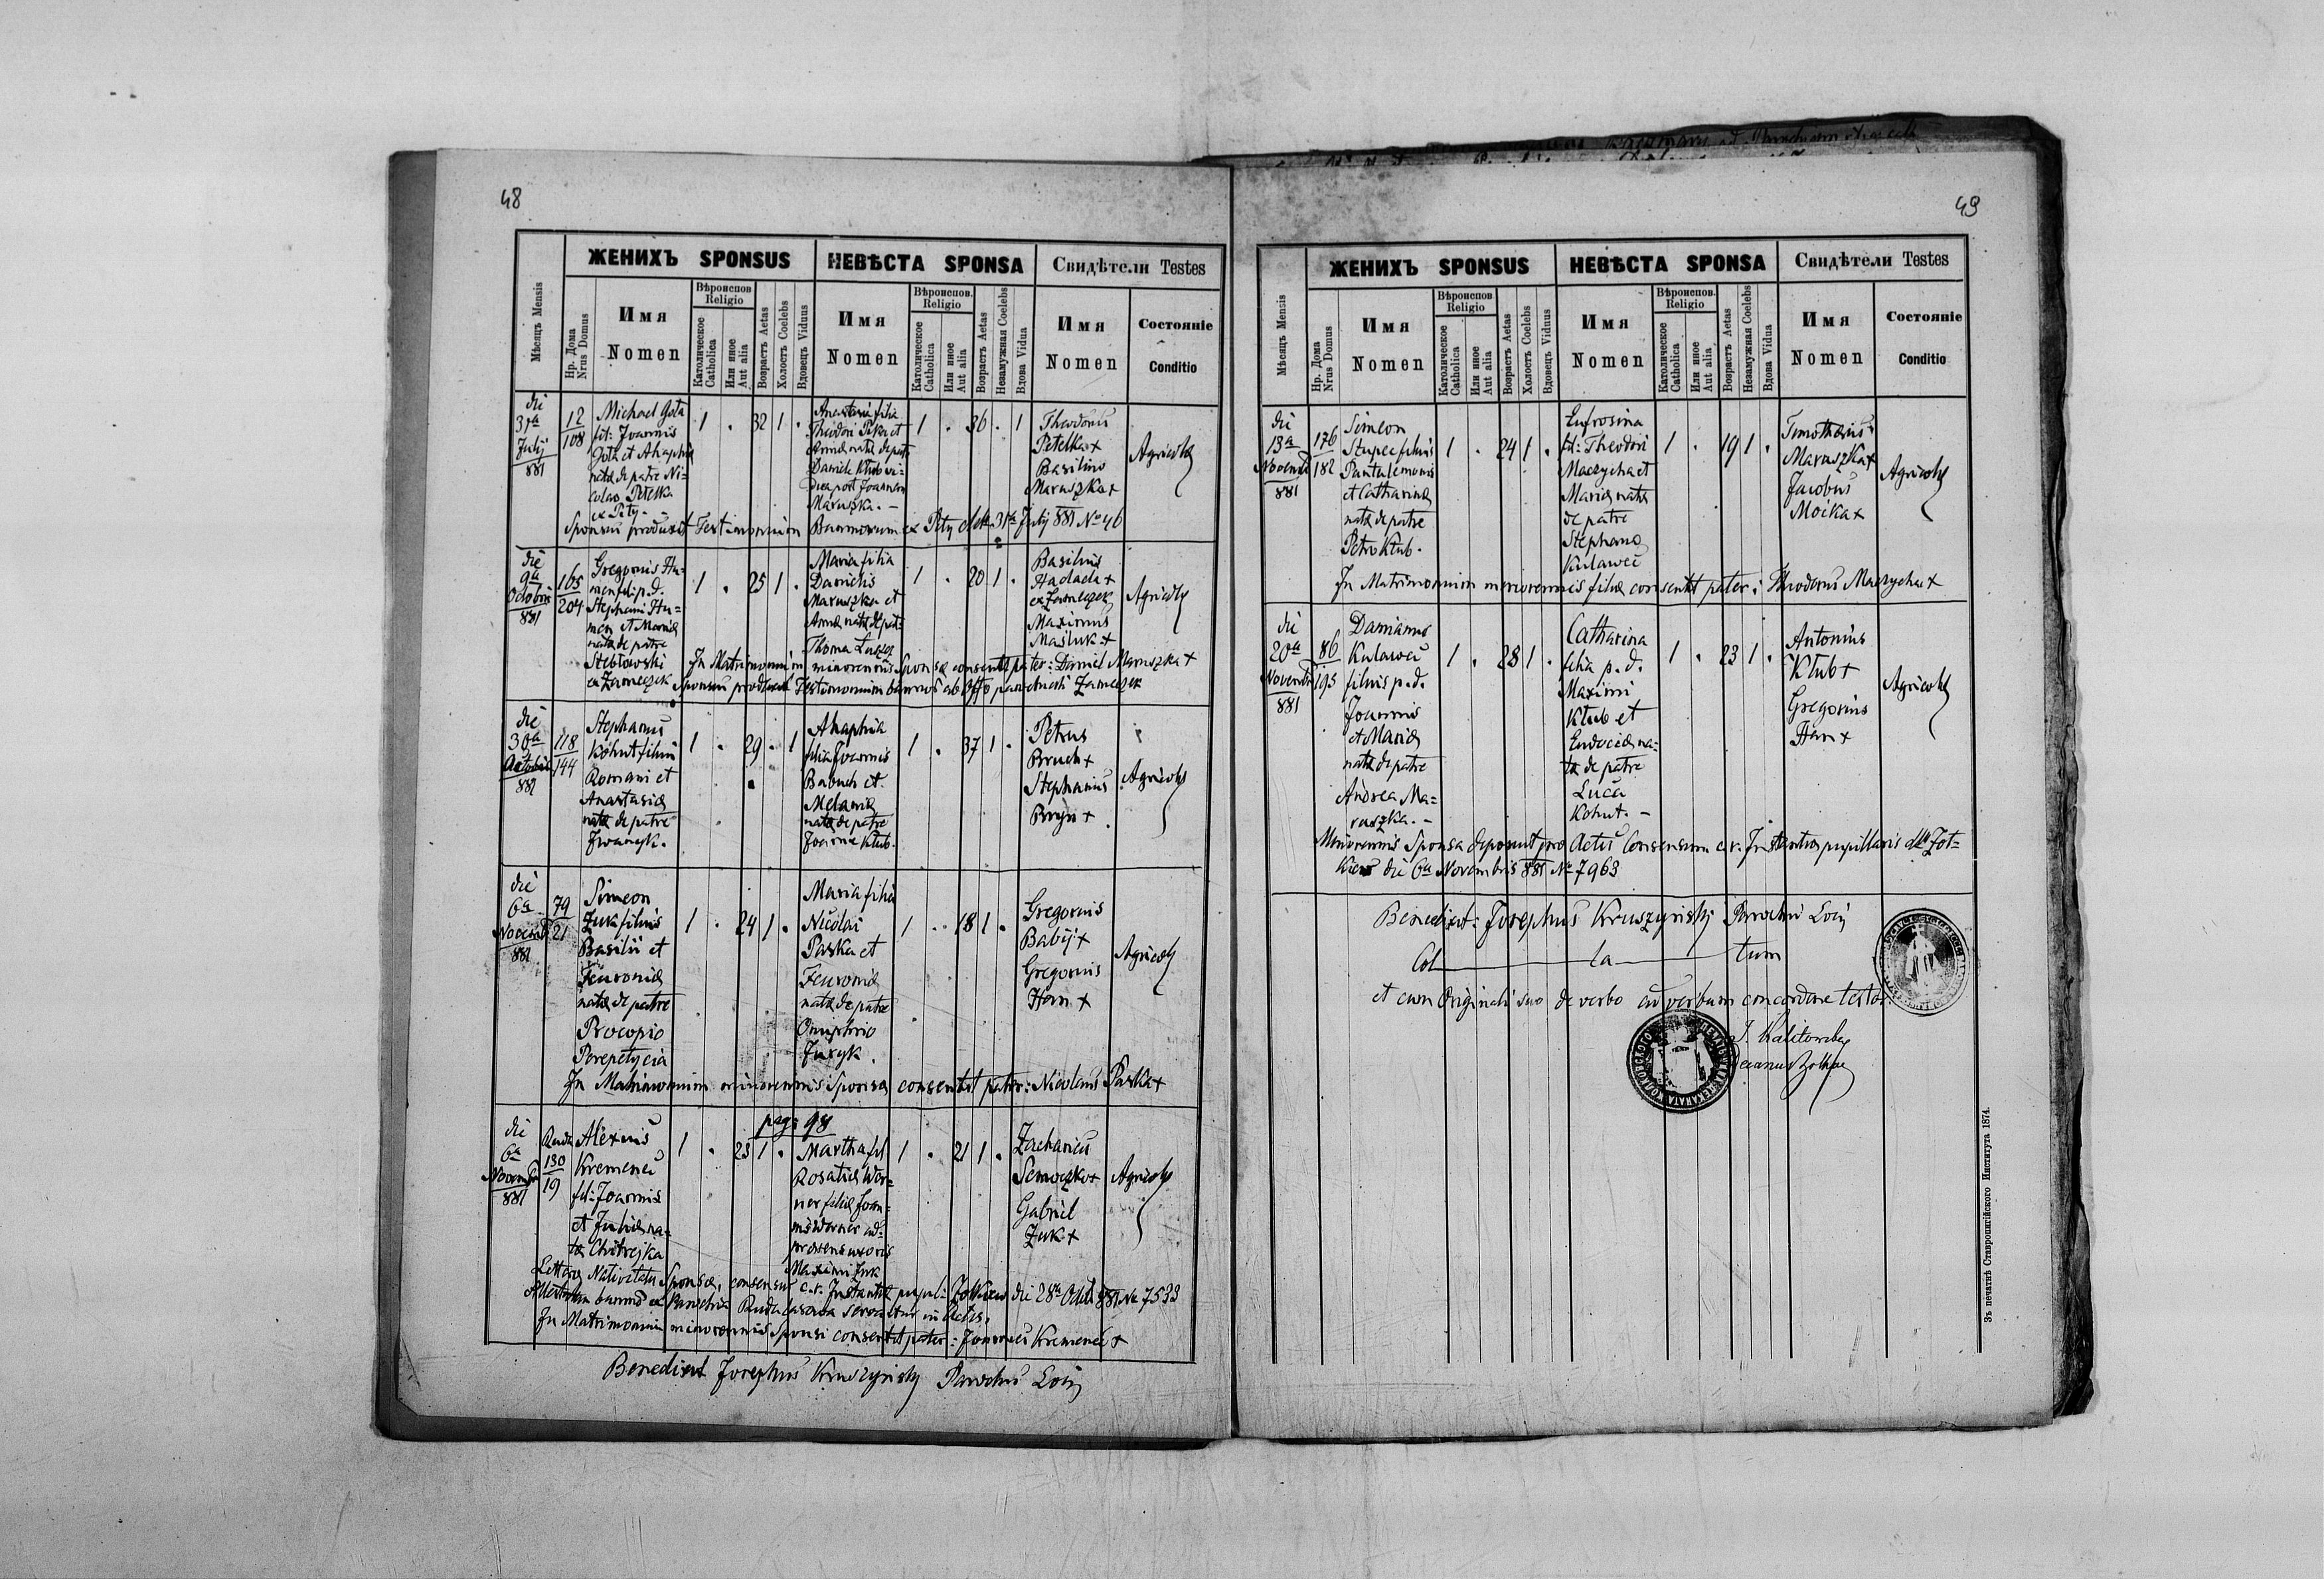 48
ЖЕНИХЪ SPONSUS
НЕВѢСТА SPONSA
Свидѣтели Testes
Мѣсяцъ Mensis
Нр. Дома
Nrus Domus
Имя
Nomen
Вѣроиспов.
Religio
Католическое
Catholica
Или иное
Aut alia
Возрастъ Aetas
Холостъ Coelebs
Вдовецъ Viduus
Имя
Nomen
Вѣроиспов.
Religio
Католическое
Catholica
Или иное
Aut alia
Возрастъ Aetas
Незамужная Coelebs
Вдова Vidua
Имя
Nomen
Состояніе
Conditio
die
31a
Julij
881
12
108
Michael Gota
fil: Joannis
Gota et Ahaphiæ
natæ de patre Ni=
colao Petelka
ex Pity.-
1 . 32 1 .
Anastasia filia
Theodori Pika et
Annæ natæ de patre
Daniele Kłub vi=
dua post Joannem
Maruszka. -
1 . 36 . 1
Theodorus
Petelka +
Basilius
Maruszka +
Agricolæ
Sponsus produxit Testimonium Bannorum ex Pity ddto 31a Julij 881 No 46
die
9a
Octobris
881
165
204
Gregorius Hu=
men fil: p. d.
Stephani Hu=
men et Mariæ
natæ de patre
Steblowski
ex Zameczek
1 . 25 1 .
Maria filia
Danielis
Maruszka et
Annæ natæ de pat=
Thoma
1 . 20 1 .
Basilius
Hadada +
ex Zameczek
Maximus
Masluk +
Agricolæ
In Matrimonium minorennis Sponsæ consentit pater: Daniel Maruszka +
Sponsus produxit Testimonium bannor ab Offo parochiali Zameczek
die
30a
Octobris
881
118
144
Stephanus
Kohut filius
Romani et
Anastasiæ
natæ de patre
Iwanyk.
1 . 29 . 1
Ahaphia
filia Joannis
Babuch et
Melaniæ
natæ de patre
Joanne Kłub.
1 . 37 1 .
Petrus
Bruch +
Stephanus
Bryn +
Agricolæ
die
6a
Novemb
881
79
21
Simeon
Zuk filius
Basilii et
Feuroniæ
natæ de patre
Procopio
Perepetycia
1 . 24 1 .
Maria filia
Nicolai
Paska et
Feuroniæ
natæ de patre
Onuphrio
Juzyk.
1 . 18 1 .
Gregorius
Babij +
Gregorius
Hern +
Agricolæ
In Matrimonium minorennis Sponsæ consentit pater: Nicolaus Paska +
pag: 98
die
6a
Novembr
881
Ruda
130
19
Alexius
Kremeneć
fil: Joannis
et Juliæ na=
tæ Chitrejka
1 . 23 1 .
Martha fil
Rosaliæ Wer=
ner filiæ Joan=
nis Werner ad=
præsens uxoris
Maximi Zuk
1 . 21 1 .
Zacharias
Semoczko +
Gabriel
Zuk +
Agricolæ
Litteræ Nativitatis Sponsæ, consensus c. r. Instantiæ pupil: Żółkiew die 28a Octob 881 No 7533
bannor ex Parochia Ruda servantur in Actis,
In Matrimonium minorennis Sponsi consentit pater: Joannes Kremeneć +
Benedixit Josephus Kruszyński Parochus Loci
49
ЖЕНИХЪ SPONSUS
НЕВѢСТА SPONSA
Свидѣтели Testes
Мѣсяцъ Mensis
Нр. Дома
Nrus Domus
Имя
Nomen
Вѣроиспов.
Religio
Католическое
Catholica
Или иное
Aut alia
Возрастъ Aetas
Холостъ Coelebs
Вдовецъ Viduus
Имя
Nomen
Вѣроиспов.
Religio
Католическое
Catholica
Или иное
Aut alia
Возрастъ Aetas
Незамужная Coelebs
Вдова Vidua
Имя
Nomen
Состояніе
Conditio
die
13a
Novemb
881
176
182
Simeon
Stupec filius
Pantalemonis
et Catharinæ
natæ de patre
Petro Kłub.
1 . 24 1 .
Eufrosina
fil: Theodori
Maczycha et
Mariæ natæ
de patre
Stephano
Kulaweć
1 . 19 1 .
Timotheus
Maruszka +
Jacobus
Moika +
Agricolæ
In Matrimonium minorennis filiæ consentit pater: Theodorus Maczycha +
die
20a
Novembr
881
86
195
Damianus
Kulaweć
filius p. d.
Joannis
et Mariæ
natæ de patre
Andrea Ma=
ruszka. -
1 . 28 1 .
Catharina
filia p. d.
Maximi
Kłub et
Eudociæ na=
tæ de patre
Luca
Kohut. -
1 . 23 1 .
Antonius
Kłub +
Gregorius
Hern +
Agricolæ
Minorennis Sponsa deposuit pro Actis Consensum c. r. Instantiæ pupillaris dto Żół=
kiew die 6a Novembris 881 No 7963
Benedixit: Josephus Kruszyński Parochus Loci
Col la tum
et cum Originali suo de verbo ad verbum concordare testor
Зъ печатнѣ Ставропигійского Института 1874.